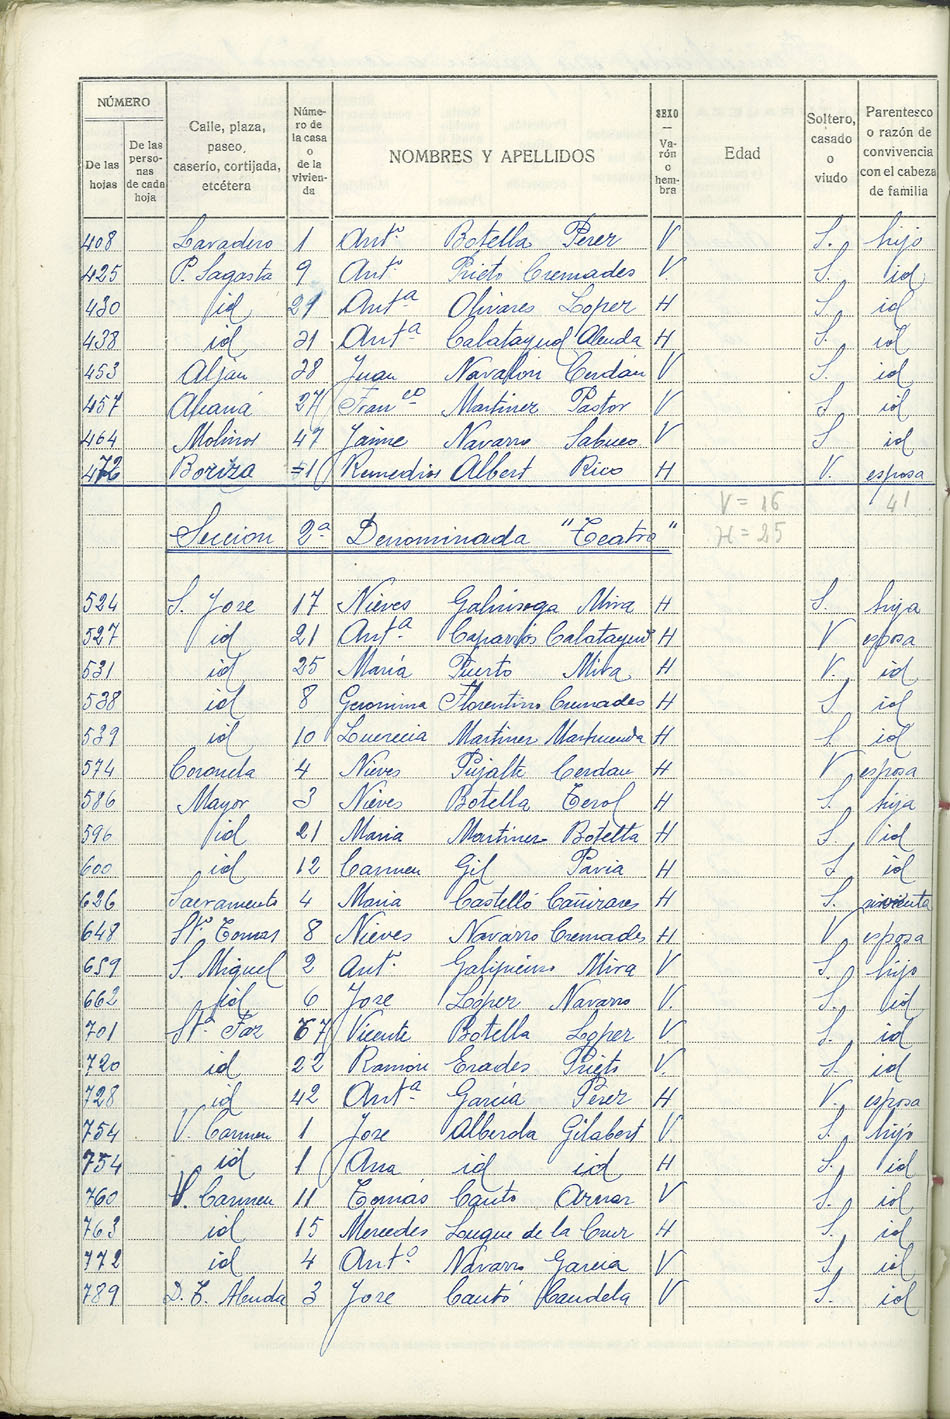 NÚMERO
De las hojas
De las perso- nas de cada hoja
Calle, plaza, paseo, caserío, cortijada, etcétera
Núme- ro de la casa o de la vivien- da
NOMBRES Y APELLIDOS
SEXO — Va- rón o hem- bra
Edad
Soltero, casado o viudo
Parentesco o razón de convivencia con el cabeza de familia
408 Lavadero 1 Antº Botella Perez V S. hijo
425 P. Sagasta 9 Antº Prieto Cremades V. S. id
430 id 21 Antª Olivares Lopez H S. id
438 id 21 Antª Calatayud Alenda H S. id
453 Aljau 28 Juan Navalon Cerdán V S. id
457 27 Franco Martinez Pastor V S. id
464 Molinos 47 Jaime Navarro Sabuco V S id
472 Boriza 1 Remedios Albert Rico H V. esposa
V = 16 41
Seccion 2ª Denominada "Teatro" H = 25
524 S. Jose 17 Nieves Galinsoga Mira H S. hija
527 id 21 Antª Caparrós Calatayud H V esposa
531 id 25 María Puerto Mira H V. id
538 id 8 Geronima Florentino Cremades H S id
539 id 10 Lucrecia Martinez H S. id
574 Coronela 4 Nieves Pujalte Cerdan H V esposa
586 Mayor 3 Nieves Botella Terol H S. hija
596 id 21 Maria Martinez Botella H S. id
600 id 12 Carmen Gil Pavia H S id
626 Sacramento 4 Maria Castelló Cañizares H S. sirvienta
648 Stº Tomas 8 Nieves Navarro Cremades H V esposa
659 S. Miguel 2 Antº Galipienso Mira V S. hijo
662 id 6 Jose Lopez Navarro V. S. id
701 Stª Faz 67 Vicente Botella Lopez V S. id
720 id 22 Ramón Erades Prieto V. S. id
728 id 42 Antª García Perez H V. esposa
754 V. Carmen 1 Jose Alberola Gilabert V S. hijo
754 id 1 Ana id id H S. id
760 V. Carmen 11 Tomás Canto Aznar V S. id
763 id 15 Mercedes Luque de la Cruz H S. id
772 id 4 Antº Navarro Garcia V S. id
789 D. T. Alenda 3 Jose Cantó Candela V S. id